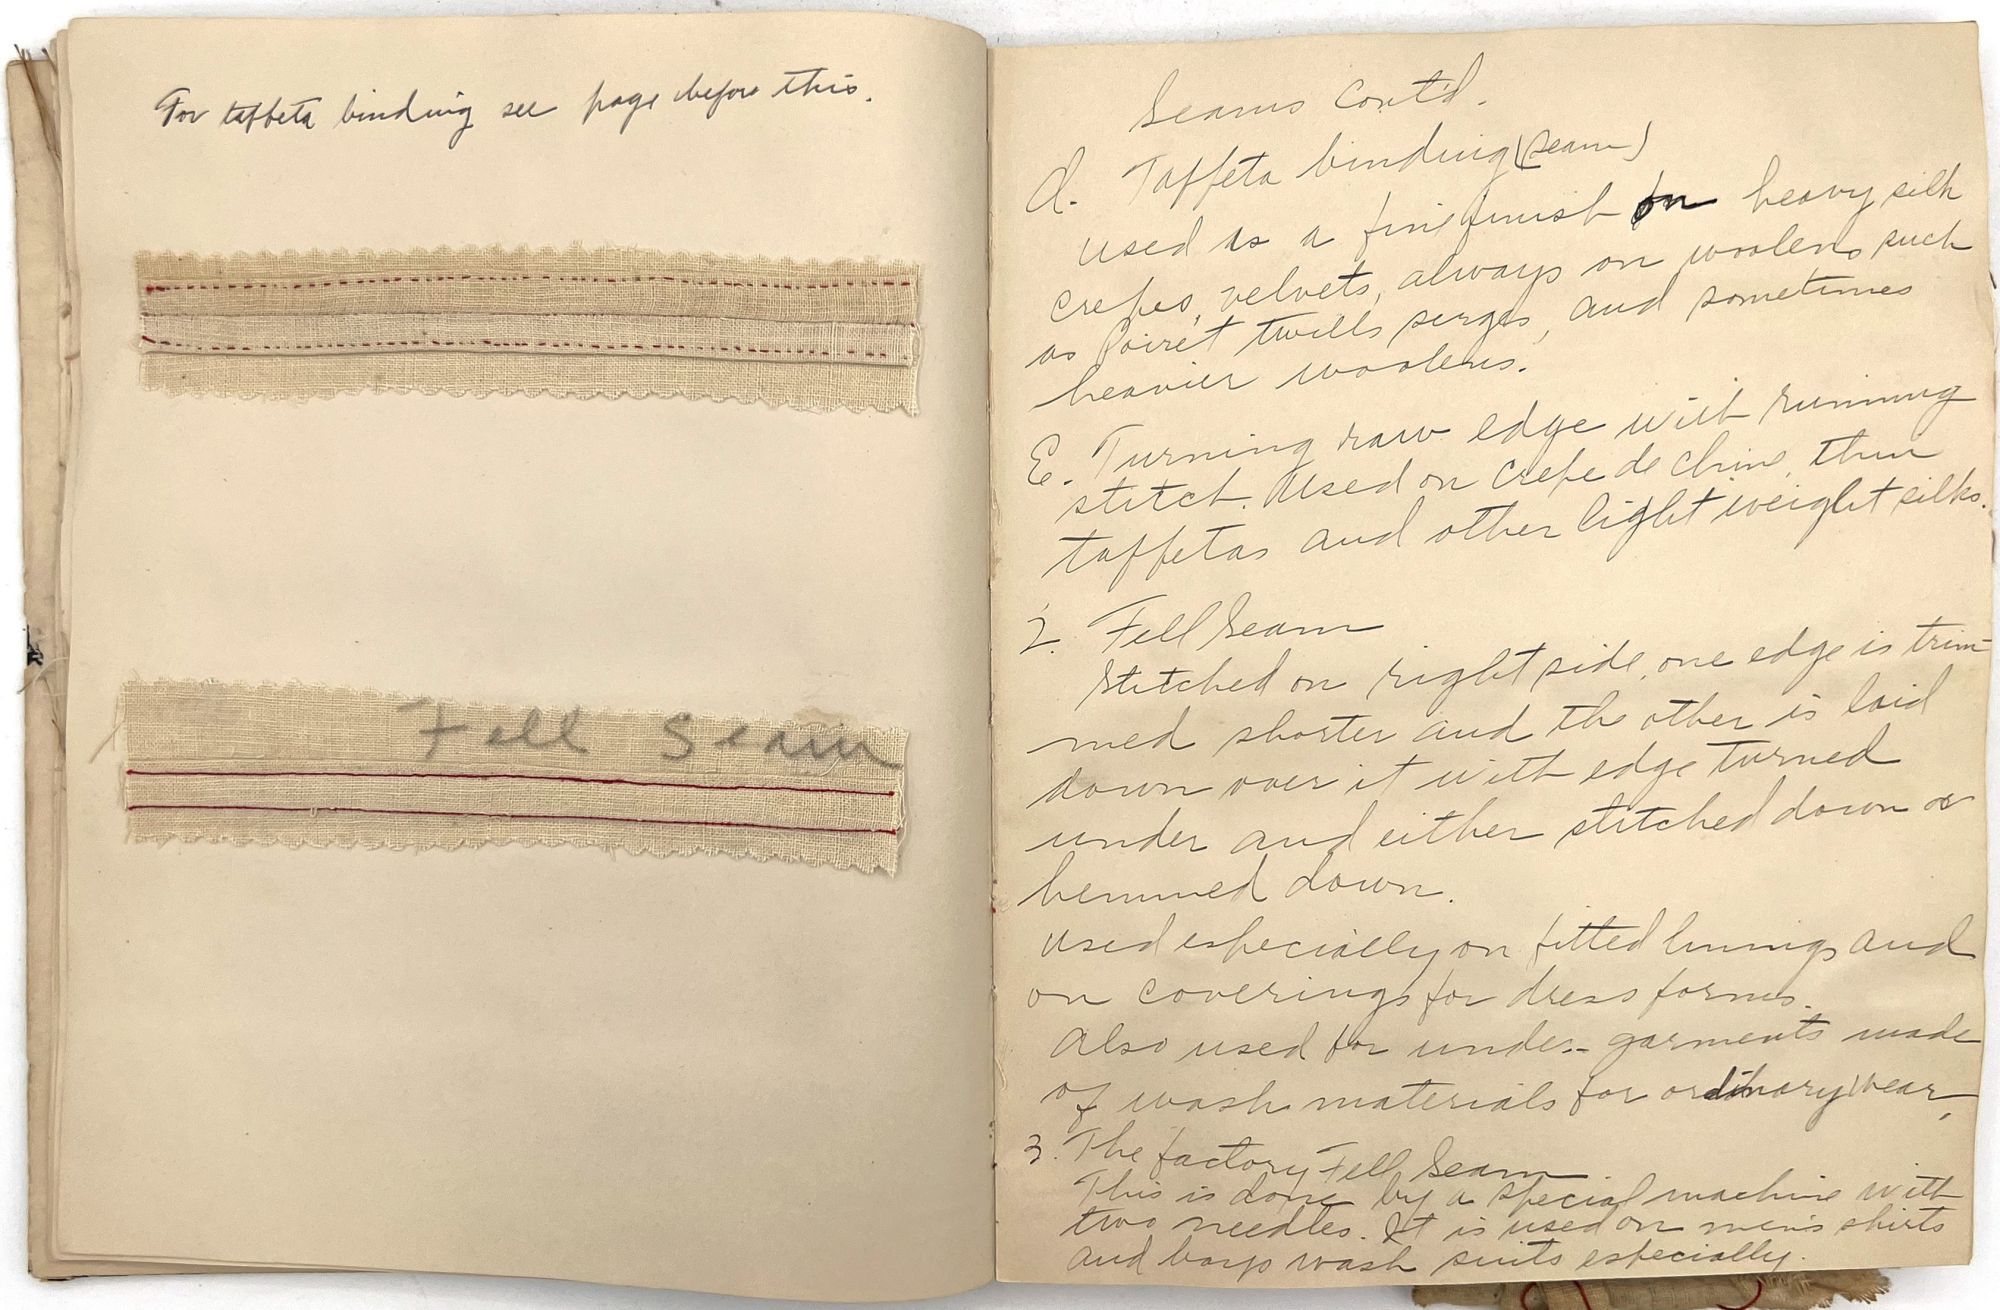 For taffeta binding see page before this.
Fell Seam
Seams Cont'd.
d. Taffeta binding (seam)
used as a fine finish on heavy silk
crepes, velvets, always on woolens such
as Poiret twills serges, and sometimes
heavier woolens.
E. Turning raw edge with running
stitch. Used on crepe de chine, thin
taffetas and other light weight silks.
2. Fell Seam
Stitched on right side, one edge is trim-
med shorter and the other is laid
down over it with edge turned
under and either stitched down or
hemmed down.
Used especially on fitted linings and
on coverings for dress forms.
Also used for under-garments made
of wash materials for ordinary wear,
3. The factory Fell Seam
This is done by a special machine with
two needles. It is used on men's shirts
and boys wash suits especially.